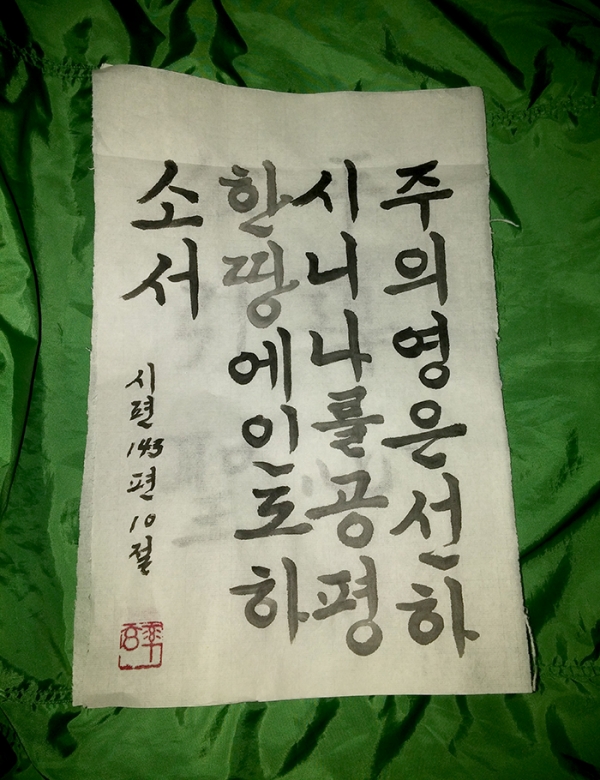 주의영은선하
시니나를공평
한땅에인도하
소서
시편143편10절